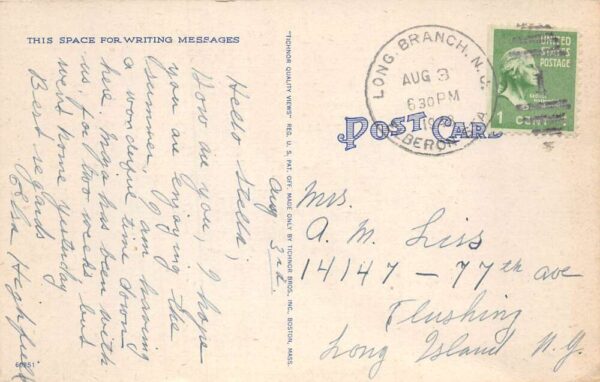 THIS SPACE FOR WRITING MESSAGES
Aug 3rd.
Hello Stella,
How are you, I hope
you are enjoying the
summer, I am having
a wonderful time down
here. Inga has been with
us for two weeks but
went home yesterday
Best regards
Elsa Highfield
60851
"TICHNOR QUALITY VIEWS" REG. U. S. PAT. OFF. MADE ONLY BY TICHNOR BROS. INC., BOSTON, MASS.
POST CARD
LONG BRANCH, N.J.
AUG 3
6 30 PM
UNITED
STATES
POSTAGE
1 CENT
Mrs.
A. M. Liss
14147 - 77th ave
Flushing
Long Island N.Y.